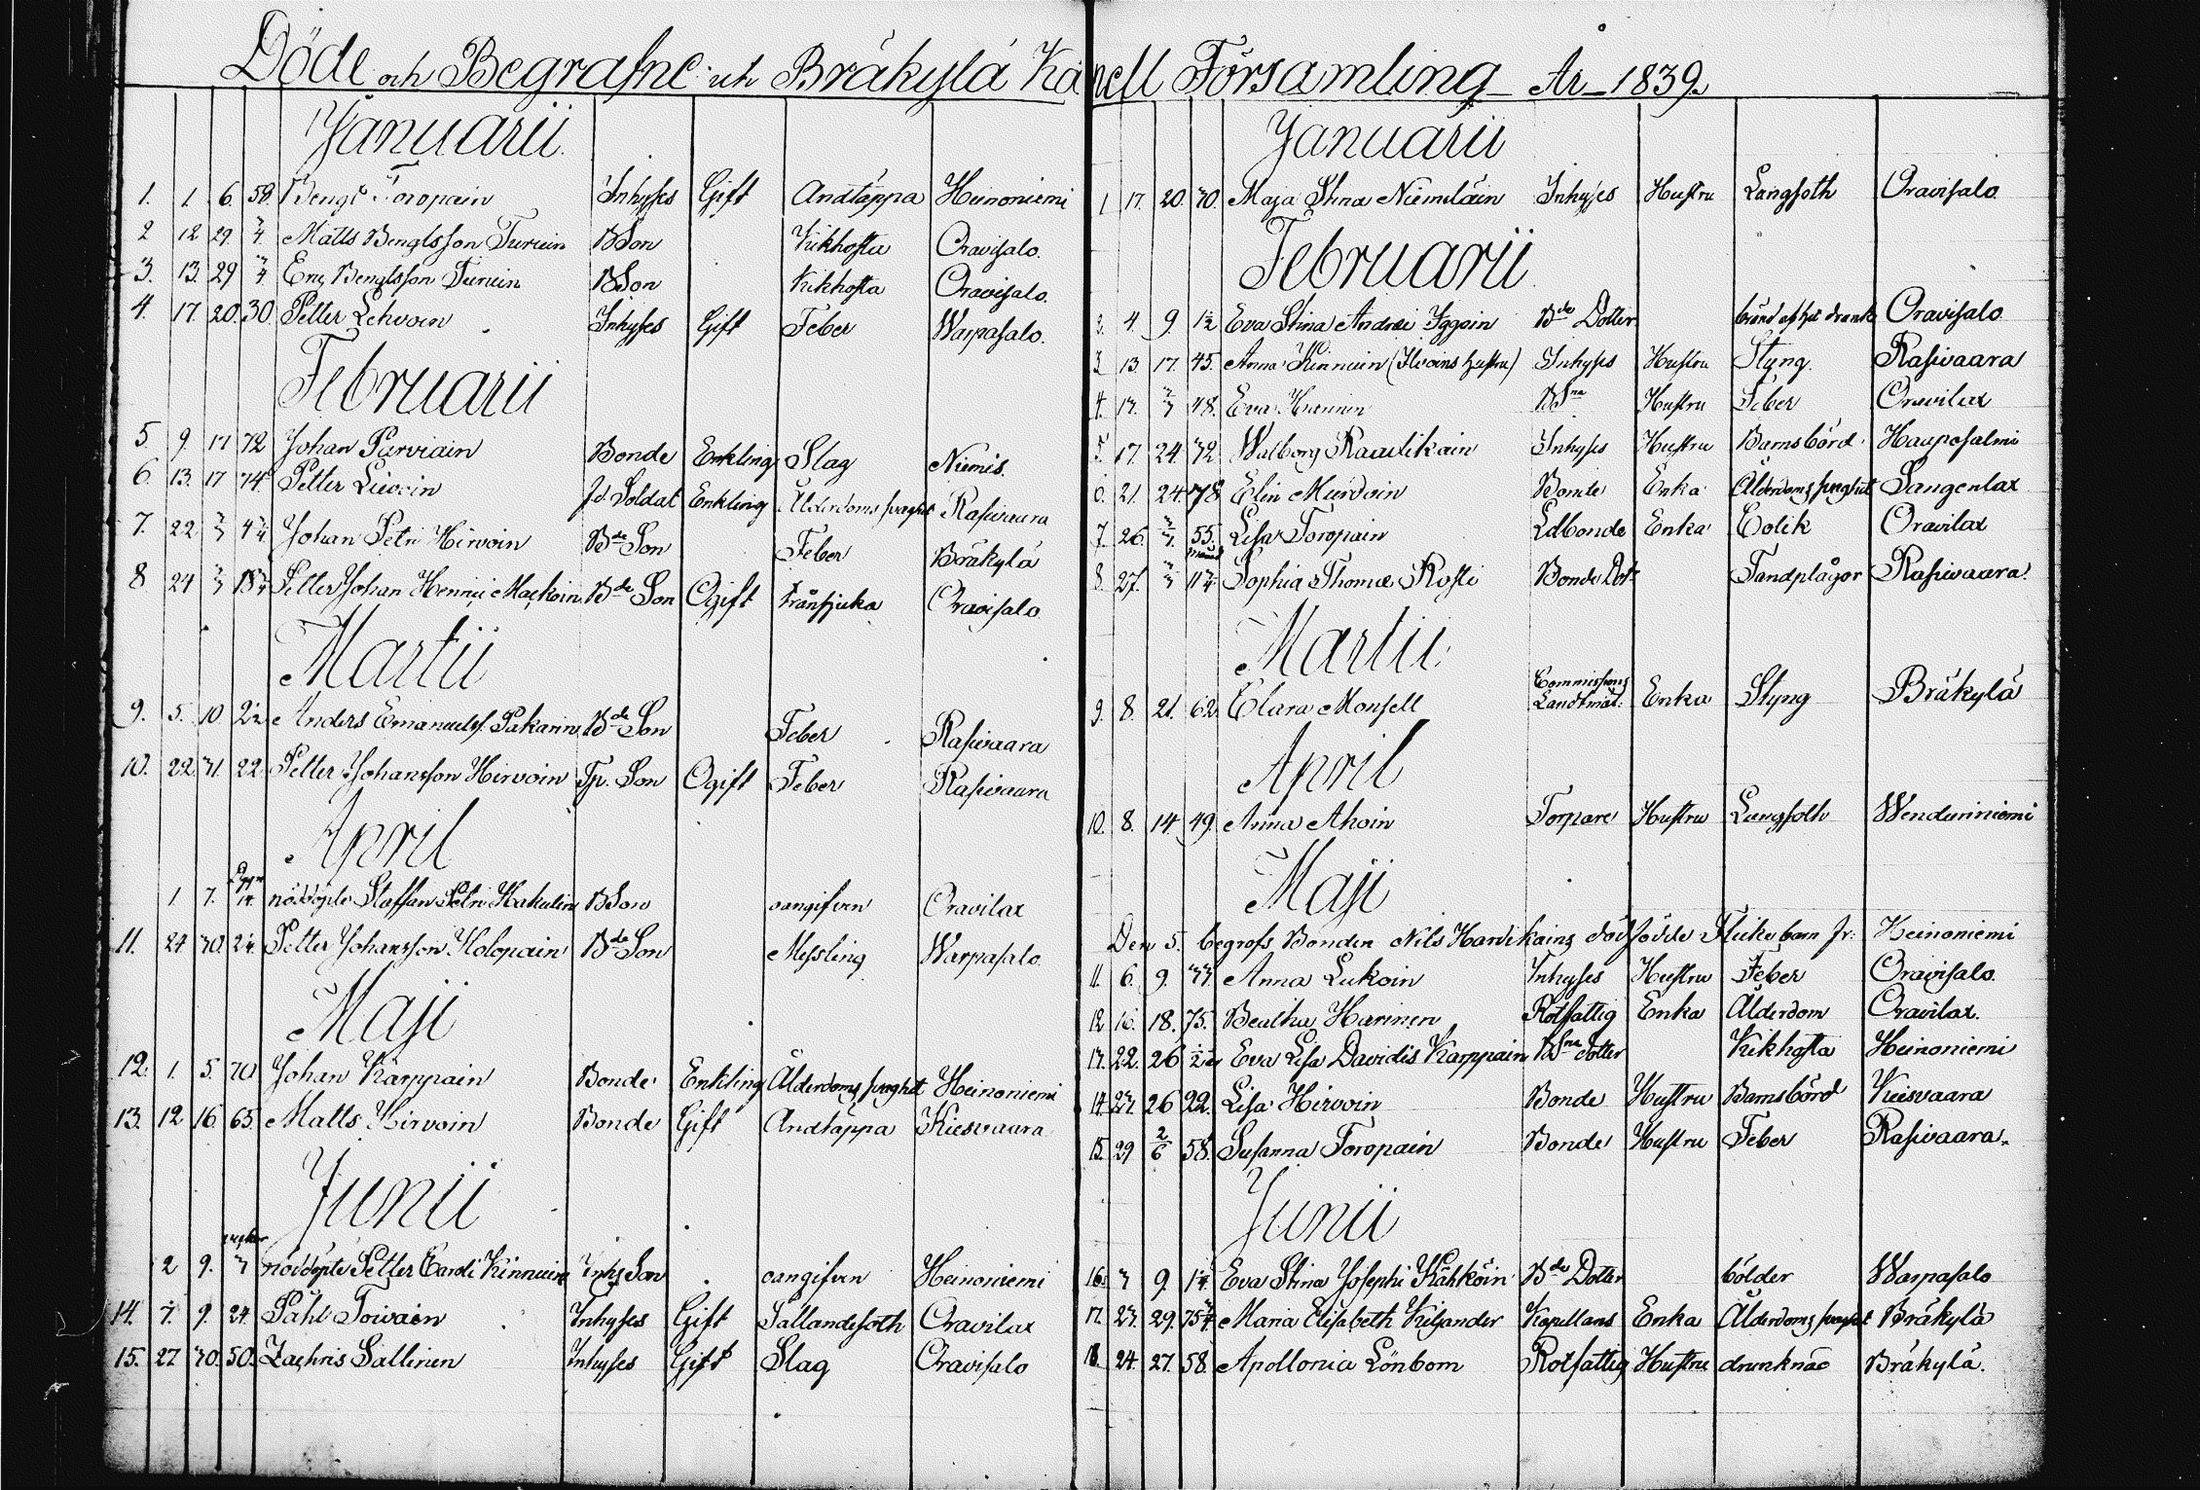 Döde och Begrafne uti Bräkylä Kapell Församling År 1839.
Januarii
1. 1 6. 59. Bengt Toropain Inhyses Gift Andtäppa Heinoniemi
2 12 29. Matts Bengtsson Turuin BSon Kikhosta Oravisalo.
3. 13. 29 Eric Bengtsson Turuin BSon Kikhosta Oravisalo.
4. 17. 20. 30. Petter Lehvoin Inhyses Gift Feber Warpasalo.
Februarii
5 9. 17 72 Johan Purviain Bonde Enkling Slag Niemis.
6. 13. 17 74. Petter Liwoin Fd. Soldat Enkling Ålderdoms svaghet Rasivaara
7. 22 3/3 Johan Petri Hirvoin Bde Son Feber Bräkylä
8 24 3/3 Petter Johan Henrici Mackoin Bde Son Ogift Frånsjuka Oravisalo
Martii
9. 5. 10 2½ Anders Emanuelss. Pakarin Bde Son Feber Rasivaara
10. 22. 31. 22. Petter Johansson Hirvoin Tp. Son Ogift Feber Rasivaara
April
1 7. nöddöpte Staffan Petri Hakulin BSon oangifven Oravilax
11. 24 30. 2¼ Petter Johansson Holopain Bde Son Messling Warpasalo.
Maji
12. 1. 5. 70 Johan Karppain Bonde Enkling Ålderdoms svaghet Heinoniemi
13. 12 16. 65. Matts Hirvoin Bonde Gift Andtäppa Kiesvaara
Junii
2 9. 3 veckor nöddöpte Petter Caroli Kinnuin Inhs Son oangifven Heinoniemi
14. 7. 9. 24. Påhl Toivain Inhyses Gift Fallandesoth Oravilax
15. 27 30. 50. Zachris Sallinen Inhyses Gift Slag Oravisalo
Januarii
1 17. 20. 70. Maja Stina Niemeläin Inhyses Hustru Lungsoth Oravisalo
Februarii
2. 4. 9. 1½ Eva Stina Andrei Iggoin Bde Dotter bränd af het drank Oravisalo
3 13. 17. 45. Anna Kinnuin (Ilvoins hustru) Inhyses Hustru Styng. Rasivaara
4. 13. 48. Eva Hannin BSne Hustru Feber Oravilax
5. 17. 24. 32 Walborg Raudikain Inhyses Hustru Barnsbörd Haapasalmi
6. 21. 24. 78 Elin Muivoin Bonde Enka Ålderdoms svaghet Sangenlax
7. 26. 3/3. 55. Lisa Toropain Ldbonde Enka Colik Oravilax
8. 27. 3/3 Sophia Thomæ Rosti Bonde Dott Tandplågor Rasivaara.
Martii
9. 8. 21. 62. Clara Monsell Commissions Landtmät. Enka Styng Bräkylä
April
10. 8. 14 49 Anna Ahoin Torpare Hustru Lungsoth Wenduriniemi
Maji
Den 5. begrofs Bonden Nils Hardikains dödfödde Flickebarn fr. Heinoniemi
11. 6. 9. 33. Anna Lukoin Inhyses Hustru Feber Oravisalo.
12 16. 18. 75. Beatha Harinen Rotfattig Enka Ålderdom Oravilax.
13. 22. 26 Eva Lisa Davidis Karppain BSne Dotter Kikhosta Heinoniemi
14. 23. 26 22. Lisa Hirvoin Bonde Hustru Barnsbörd Kiesvaara
15. 29 2/6 58. Susanna Toropain Bonde Hustru Feber Rasivaara.
Junii
16. 3 9. 1¼ Eva Stina Josephi Kähköin Bde Dotter bölder Warpasalo
17. 23. 29. 75¾ Maria Elisabeth Kiljander Kapellans Enka Ålderdoms svaghet Bräkylä
18. 24. 27. 58 Apollonia Lönbom Rotfattig Hustru drunknad Bräkylä.